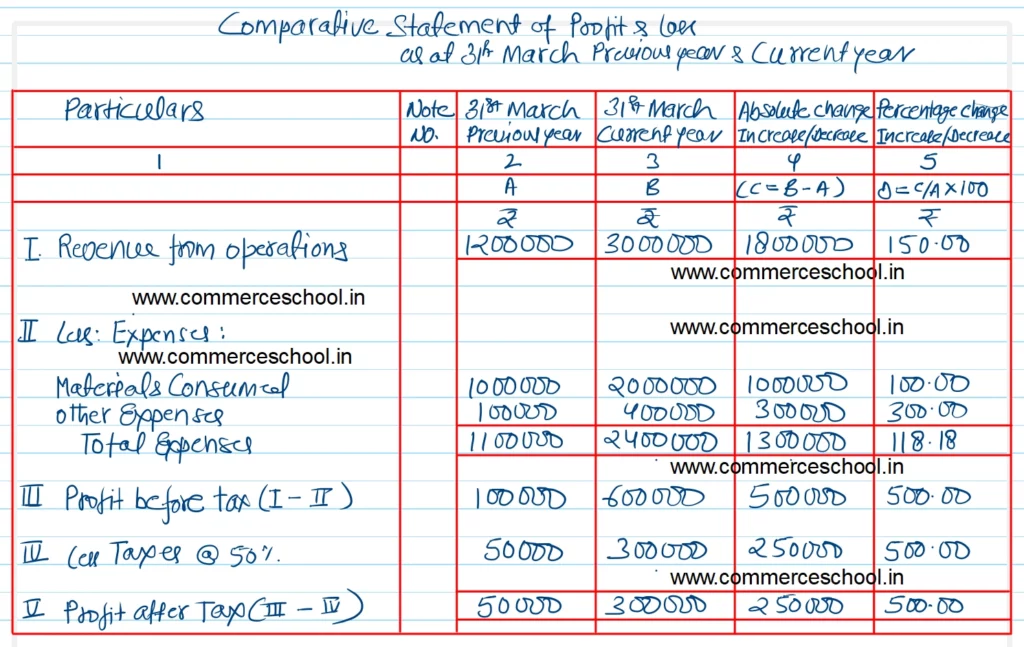 Comparative Statement of Profit & Loss
as at 31st March Previous year & Current year
Particulars Note No. 31st March Previous year 31st March Current year Absolute change Increase/Decrease Percentage change Increase/Decrease
1 2 3 4 5
A B (C = B - A) D = C/A × 100
₹ ₹ ₹ ₹
I. Revenue from operations 1200000 3000000 1800000 150.00
www.commerceschool.in
www.commerceschool.in
II Less: Expenses:
www.commerceschool.in
www.commerceschool.in
Materials Consumed 1000000 2000000 1000000 100.00
other Expenses 100000 400000 300000 300.00
Total Expenses 1100000 2400000 1300000 118.18
www.commerceschool.in
III Profit before tax (I - II) 100000 600000 500000 500.00
IV Less Taxes @ 50%. 50000 300000 250000 500.00
www.commerceschool.in
V Profit after Tax (III - IV) 50000 300000 250000 500.00